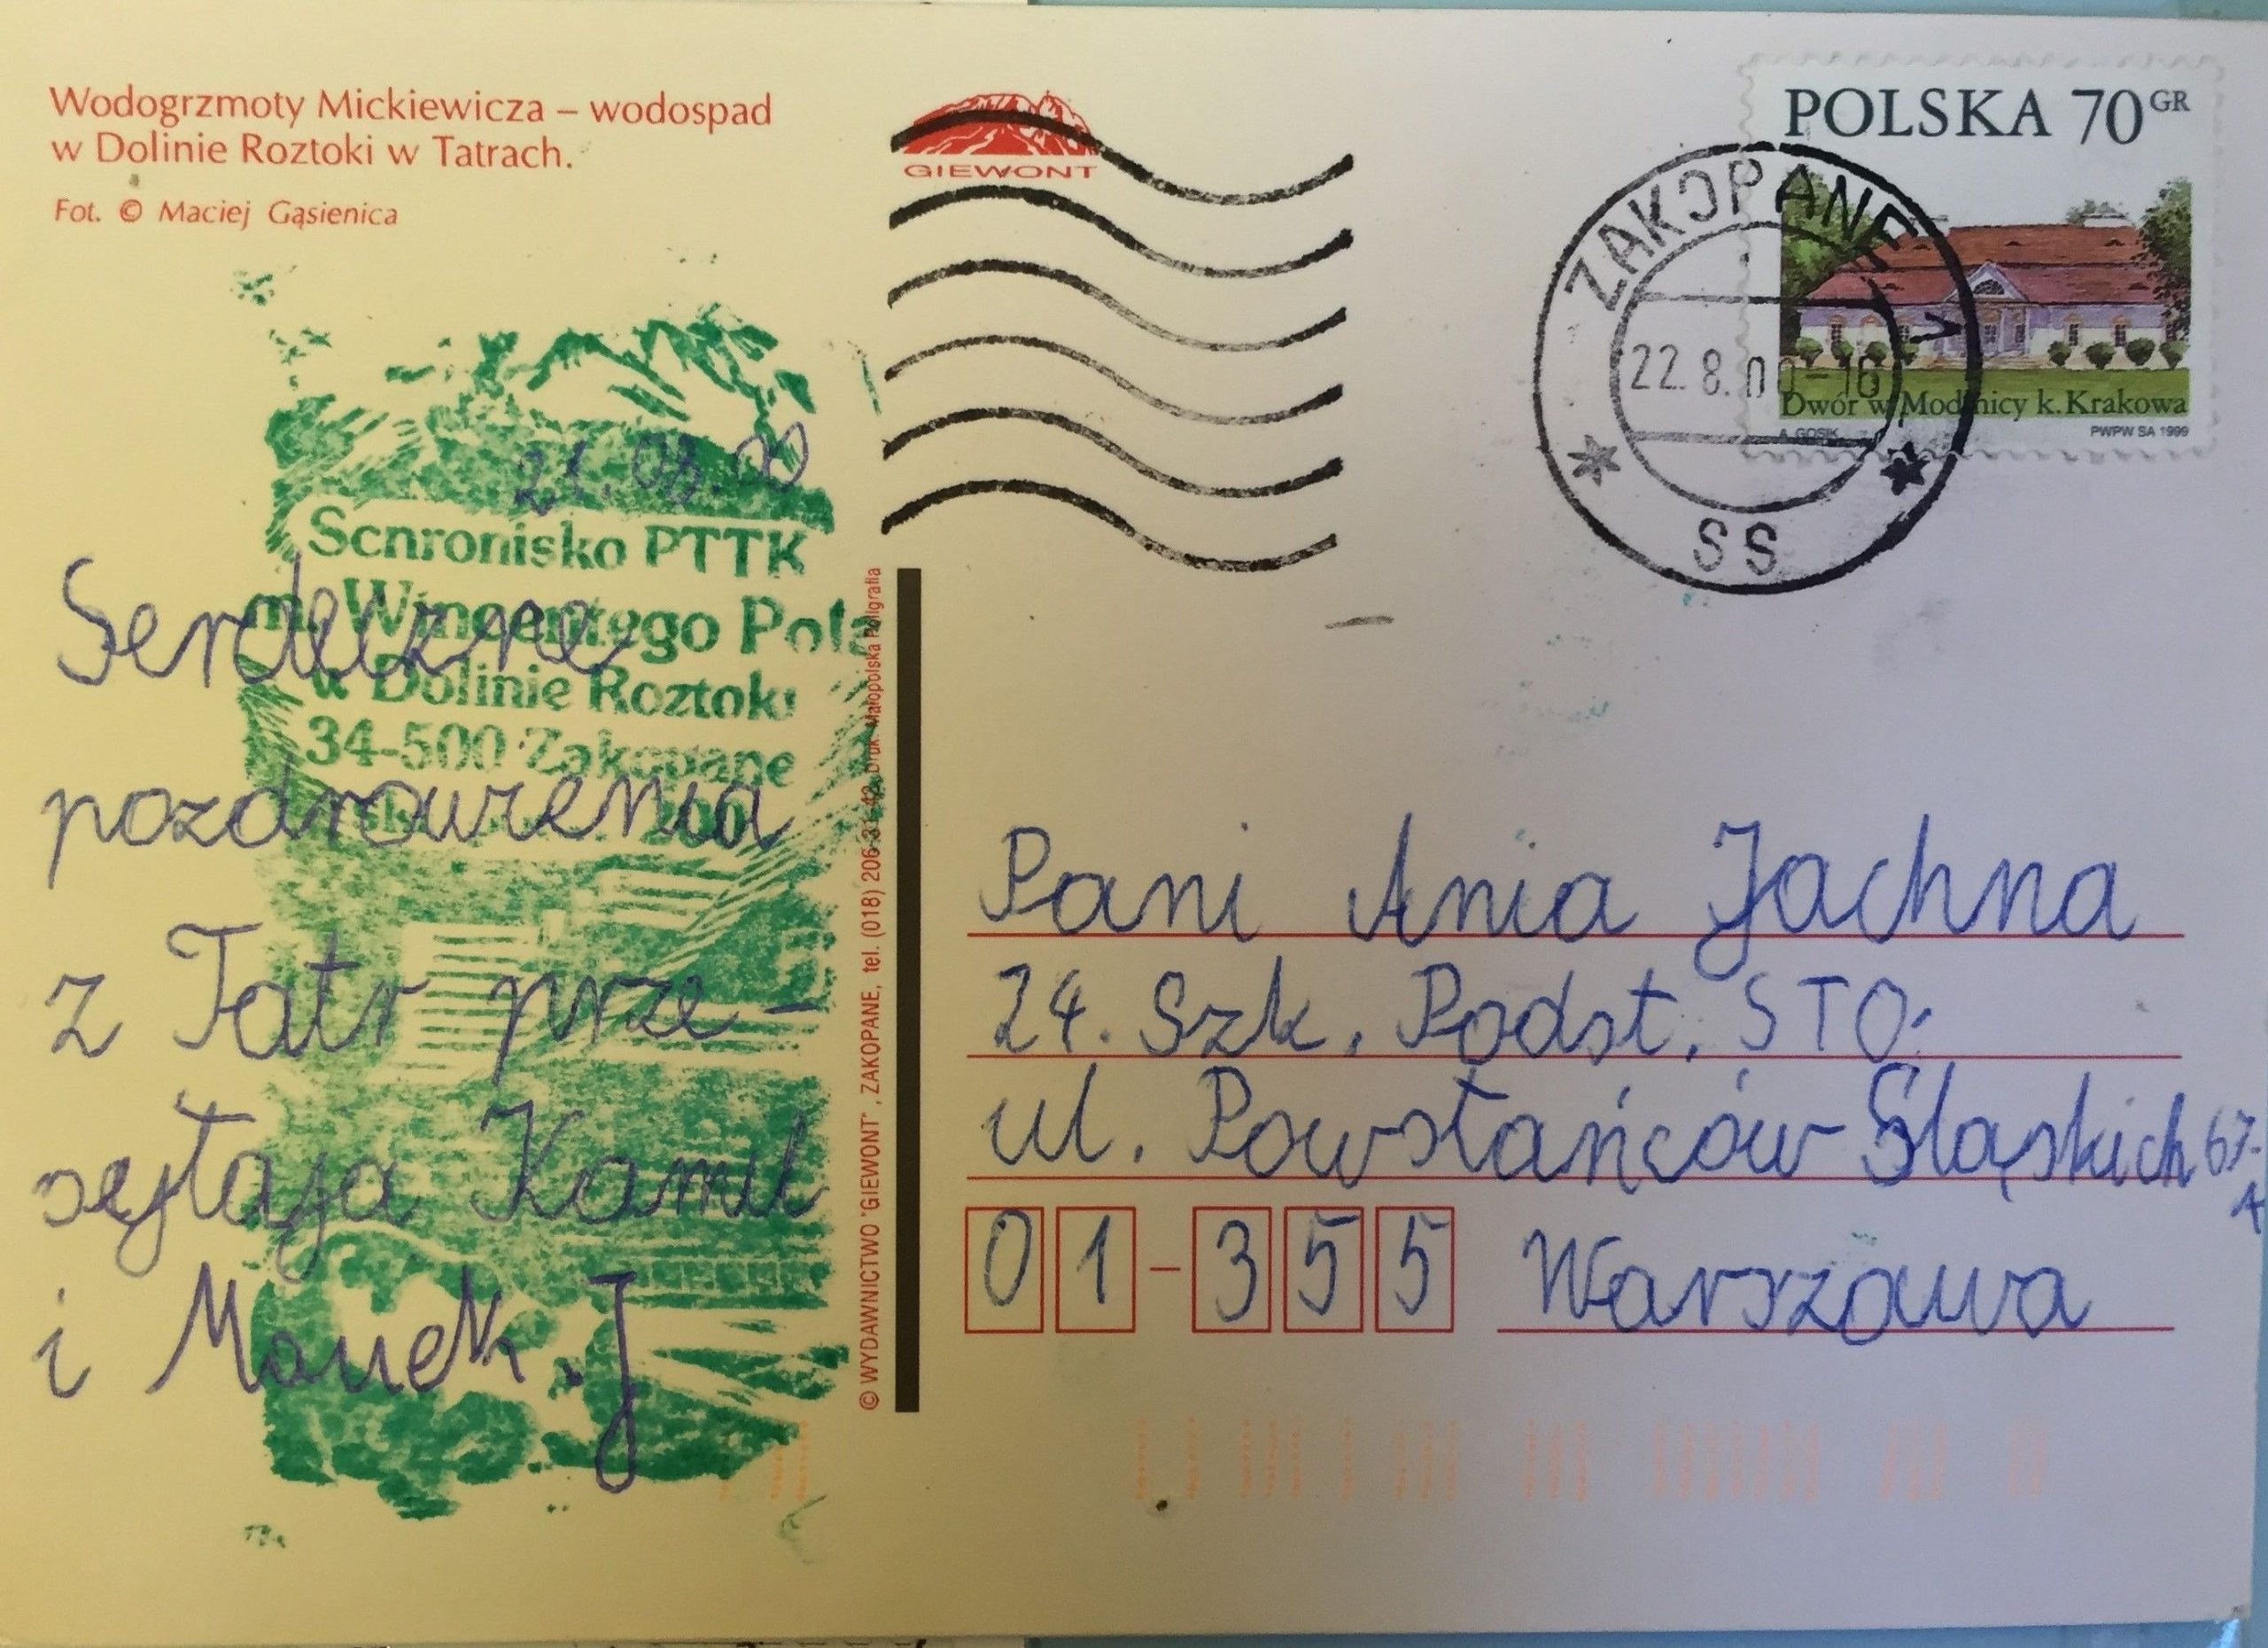 Wodogrzmoty Mickiewicza – wodospad
w Dolinie Roztoki w Tatrach.
Fot. © Maciej Gąsienica
GIEWONT
POLSKA 70 GR
Dwór w Modlnicy k. Krakowa
A. GOSIK
PWPW SA 1999
ZAKOPANE
22.8.00-16
SS
21.08.00
Schronisko PTTK
Wincentego Pola
w Dolinie Roztoki
34-500 Zakopane
Serdeczne
pozdrowienia
z Tatr prze-
syłają Kamil
i Marek. J
© WYDAWNICTWO "GIEWONT", ZAKOPANE, tel. (018) 206-31-42, Druk. Małopolska Poligrafia
Pani Ania Jachna
24. Szk. Podst. STO.
ul. Powstańców Śląskich 67-
A
01-355 Warszawa